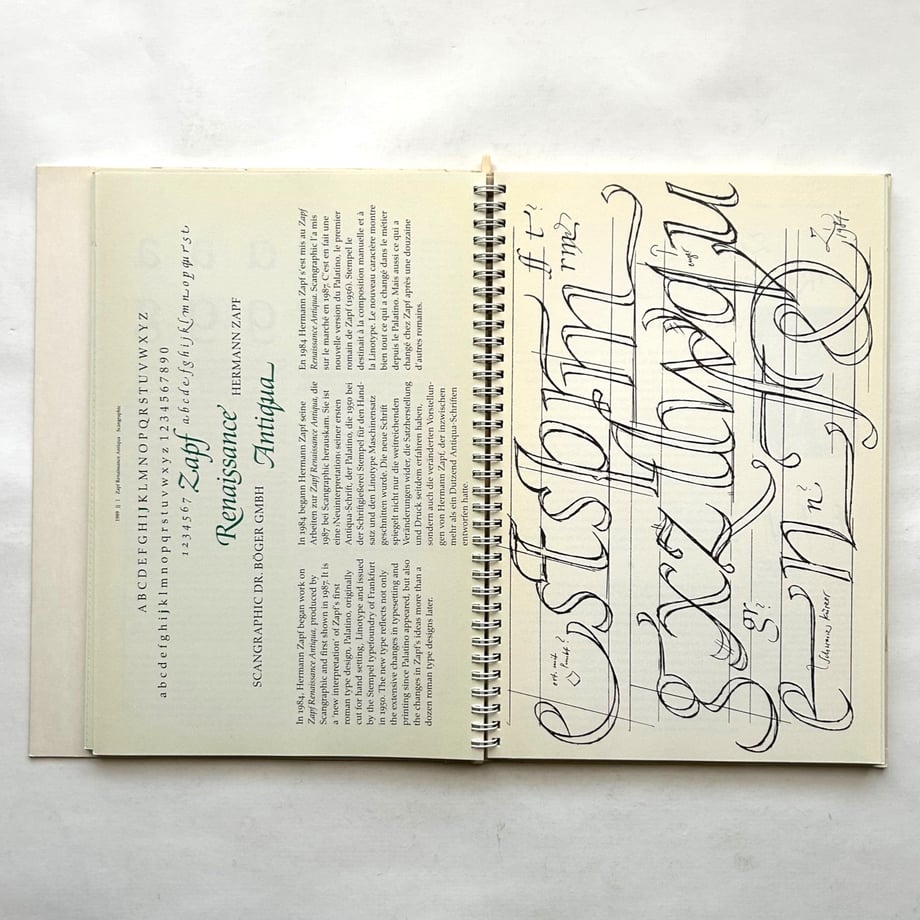 1989 || 1 Zapf Renaissance Antiqua Scangraphic
A B C D E F G H I J K L M N O P Q R S T U V W X Y Z
a b c d e f g h i j k l m n o p q r s t u v w x y z 1 2 3 4 5 6 7 8 9 0
1 2 3 4 5 6 7 Zapf a b c d e f g h i j k l m n o p q u r s t
Renaissance
HERMANN ZAPF
SCANGRAPHIC DR. BÖGER GMBH
Antiqua
In 1984, Hermann Zapf began work on
Zapf Renaissance Antiqua, produced by
Scangraphic and first shown in 1987. It is
a 'new interpretation' of Zapf's first
roman type design, Palatino, originally
cut for hand setting, Linotype and issued
by the Stempel typefoundry of Frankfurt
in 1950. The new type reflects not only
the extensive changes in typesetting and
printing since Palatino appeared, but also
the changes in Zapf's ideas more than a
dozen roman type designs later.
In 1984 begann Hermann Zapf seine
Arbeiten zur Zapf Renaissance Antiqua, die
1987 bei Scangraphic herauskam. Sie ist
eine ›Neuinterpretation‹ seiner ersten
Antiqua-Schrift, der Palatino, die 1950 bei
der Schriftgießerei Stempel für den Hand-
satz und den Linotype Maschinensatz
geschnitten wurde. Die neue Schrift
spiegelt nicht nur die weitreichenden
Veränderungen wider, die Satzherstellung
und Druck seitdem erfahren haben,
sondern auch die veränderten Vorstellun-
gen von Hermann Zapf, der inzwischen
mehr als ein Dutzend Antiqua-Schriften
entworfen hatte.
En 1984 Hermann Zapf s'est mis au Zapf
Renaissance Antiqua. Scangraphic l'a mis
sur le marché en 1987. C'est en fait une
nouvelle version du Palatino, le premier
romain de Zapf (1956). Stempel le
destinait à la composition manuelle et à
la Linotype. Le nouveau caractère montre
bien tout ce qui a changé dans le métier
depuis le Palatino. Mais aussi ce qui a
changé chez Zapf après une douzaine
d'autres romains.
ff t?
gr?
n?
1984